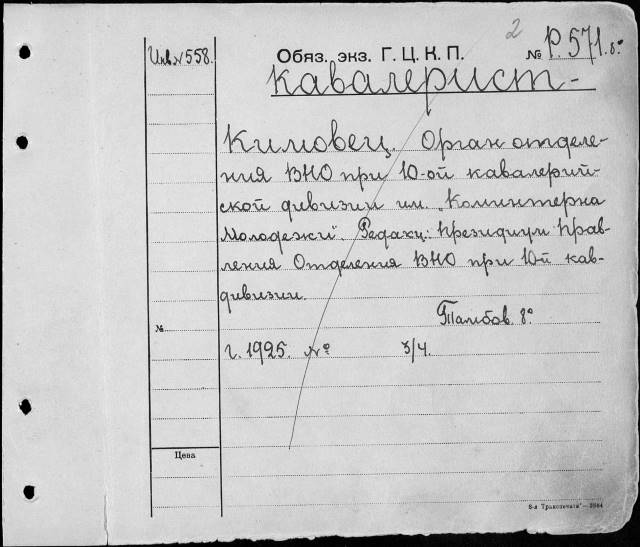 2
Инв.N 558.
Обяз. экз. Г. Ц. К. П.
№ Р.571. 8°
Кавалерист-
Кимовец. Орган отделе-
ния ВНО при 10-ой кавалерий-
ской дивизии им. „Коминтерна
Молодежи". Редакц.: Президиум Прав-
ления Отделения ВНО при 10-й кав-
дивизии.
Тамбов. 8°
№
г. 1925. №
3/4.
Цена